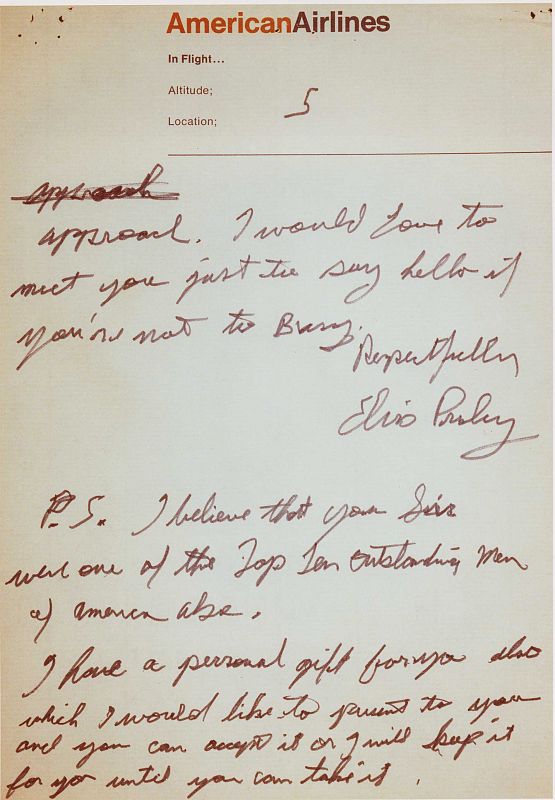 AmericanAirlines
In Flight...
Altitude; 5
Location;
approach
approach. I would Love to
meet you just to say hello if
you're not to Busy.
Respectfully
Elvis Presley
P.S. I believe that you Sir
were one of the Top Ten Outstanding Men
of America also.
I have a personal gift for you also
which I would like to present to you
and you can accept it or I will keep it
for you until you can take it.